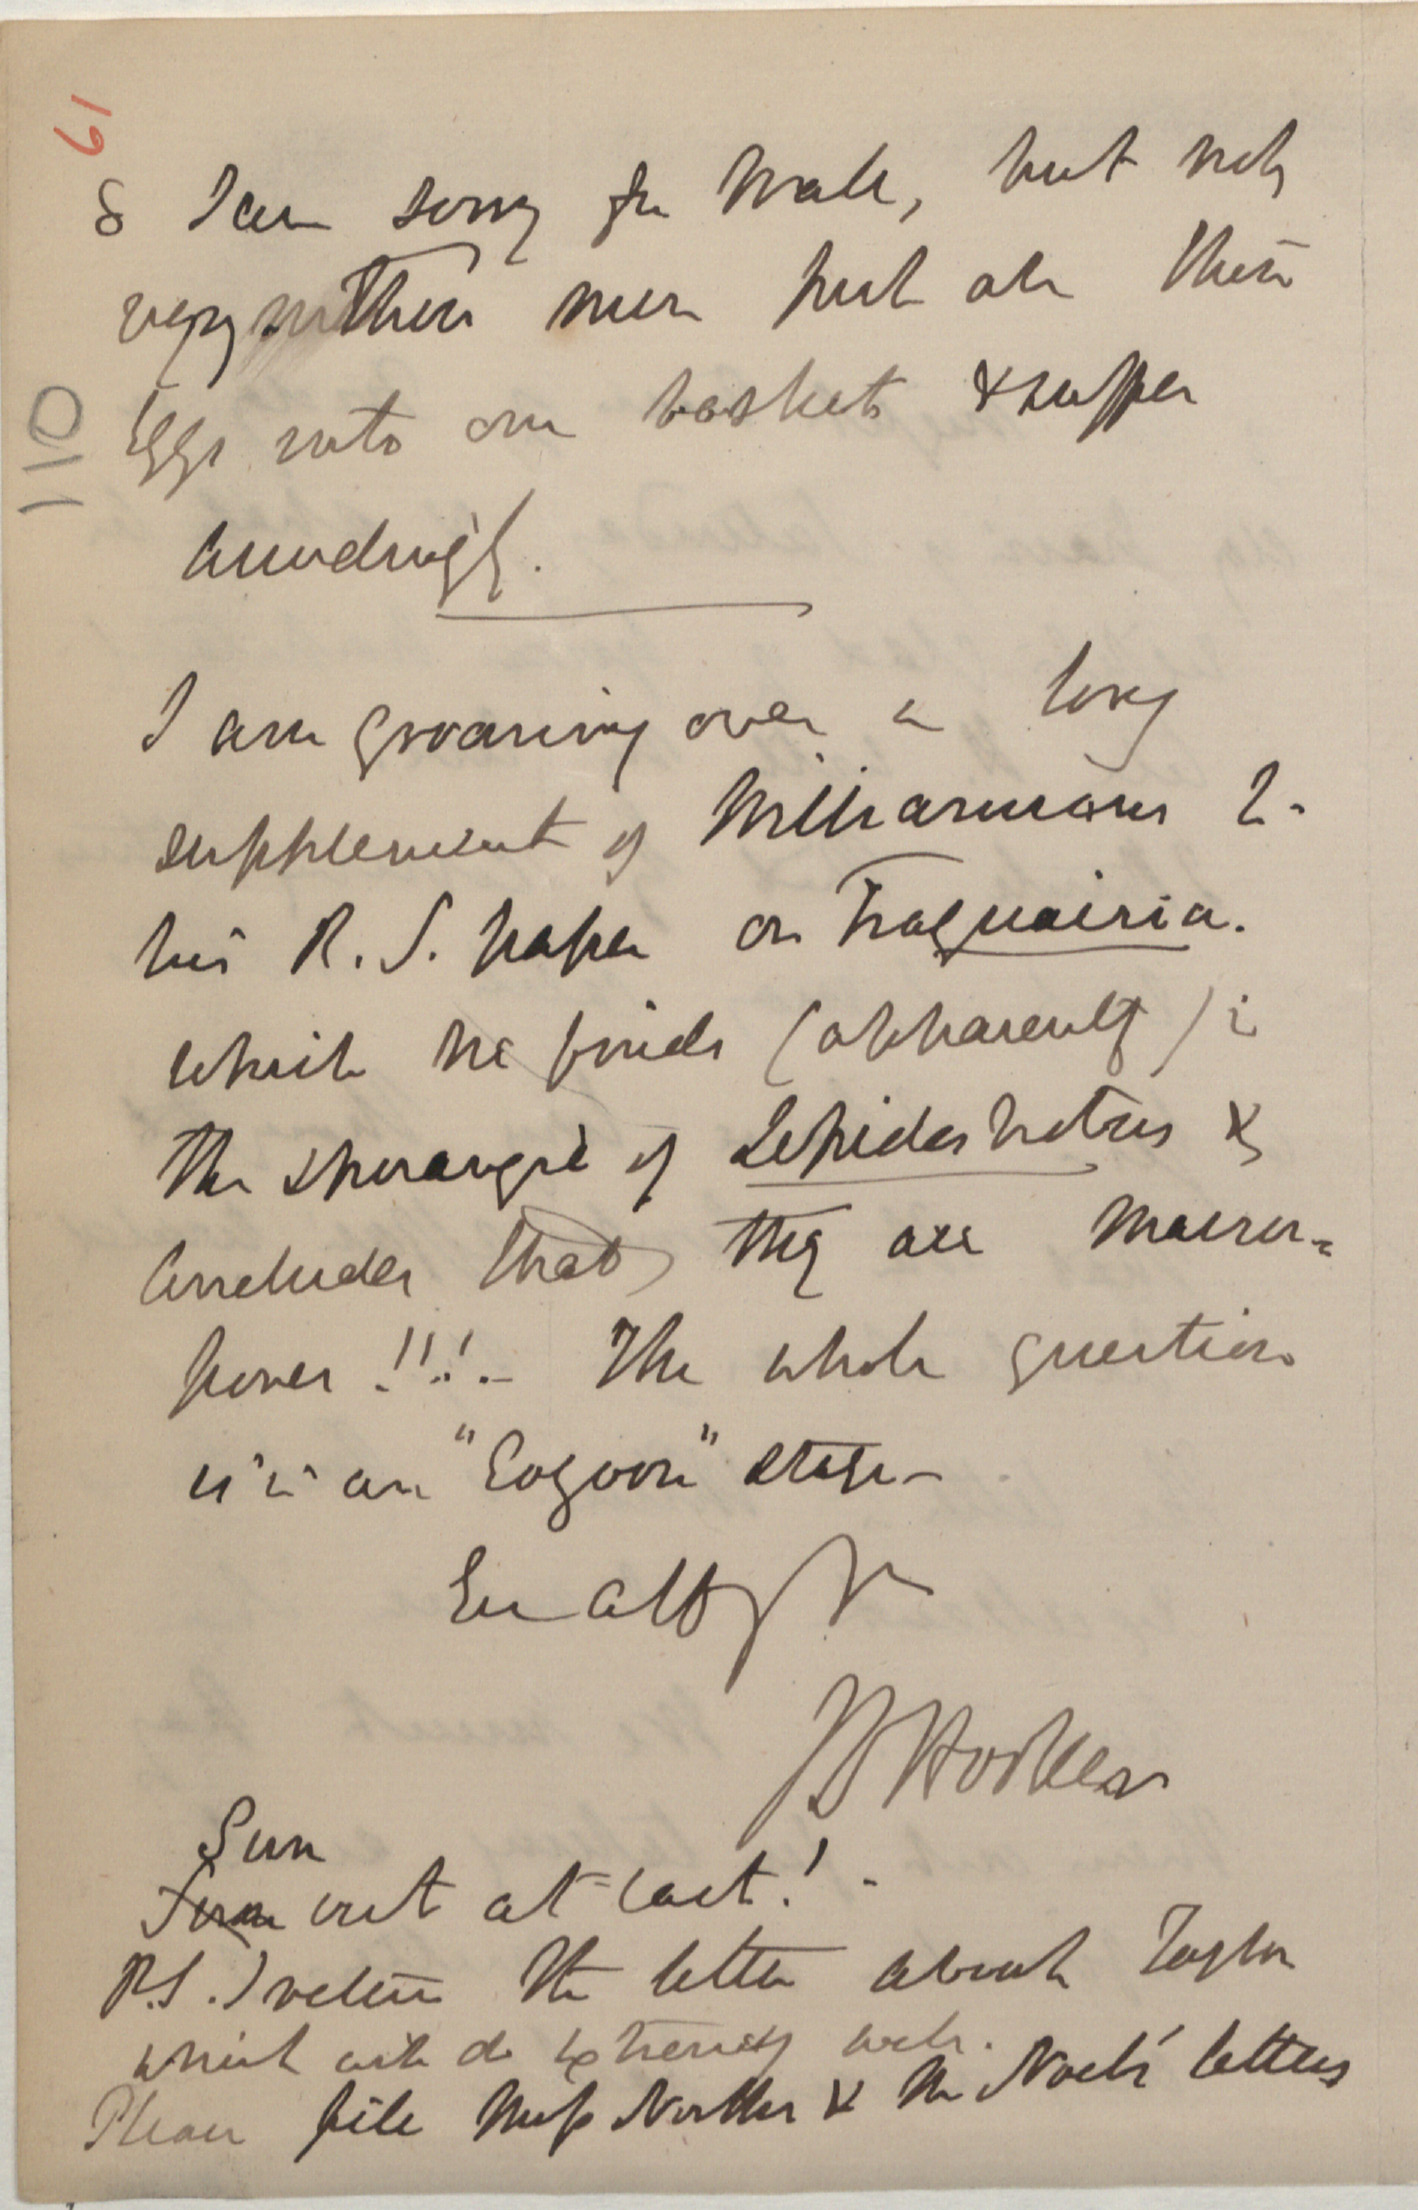 61
110
& I am sorry for Wall, but why
very these men put all their
Eggs into one basket & suffer
accordingly.
I am groaning over a long
supplement of Williamsons to
his R. S. paper on Traquairia.
which he finds (apparently) in
the sporangia of Lepidostrobus &
concludes that they are macros-
pores!!! The whole question
is in an "Eozoon" stage—
Ever affy yrs
JD Hooker
Sun
out at last!
P.S. I return the letter about Taylor
which will do extremely well.
Please file Miss North's & Mr Noel's letters